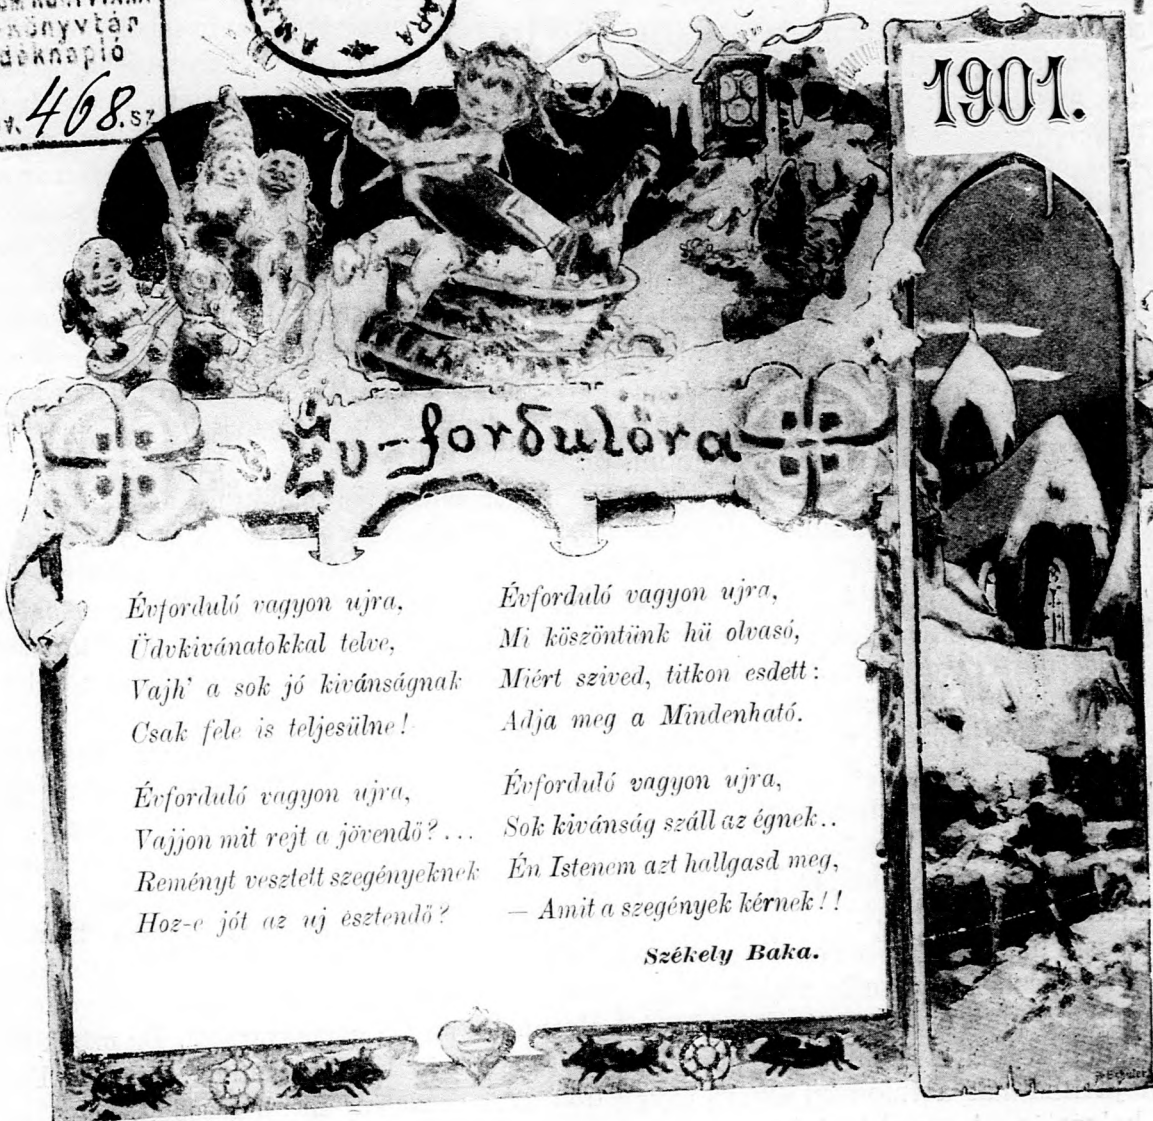 könyvtár
468. sz
ÁRA
1901.
Év-fordulóra
Évforduló vagyon ujra,
Üdvkivánatokkal telve,
Vajh' a sok jó kivánságnak
Csak fele is teljesülne!
Évforduló vagyon ujra,
Vajjon mit rejt a jövendő?...
Reményt vesztett szegényeknek
Hoz-e jót az uj esztendő?
Évforduló vagyon ujra,
Mi köszöntünk hü olvasó,
Miért szived, titkon esdett:
Adja meg a Mindenható.
Évforduló vagyon ujra,
Sok kivánság száll az égnek..
Én Istenem azt hallgasd meg,
— Amit a szegények kérnek!!
Székely Baka.